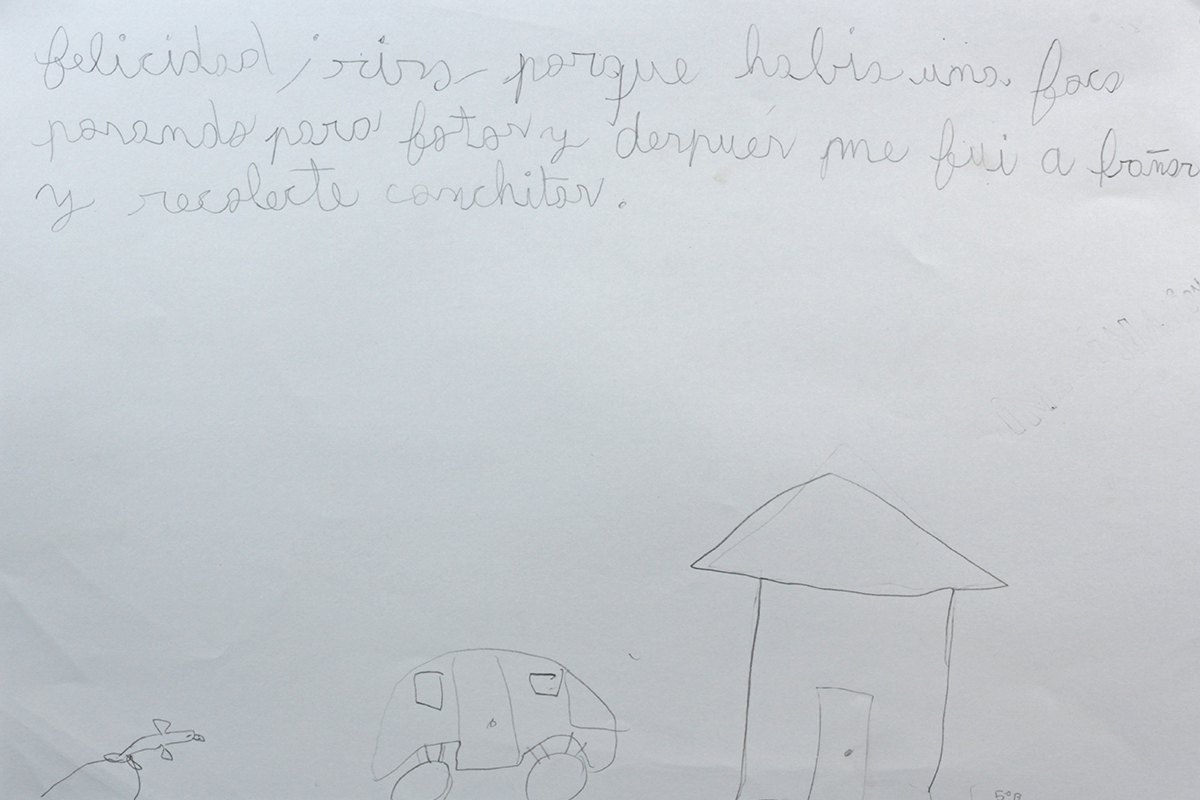 felicidad, risa porque había una foca
posando para fotos y después me fui a bañar
y recolecte conchitas.
5°B